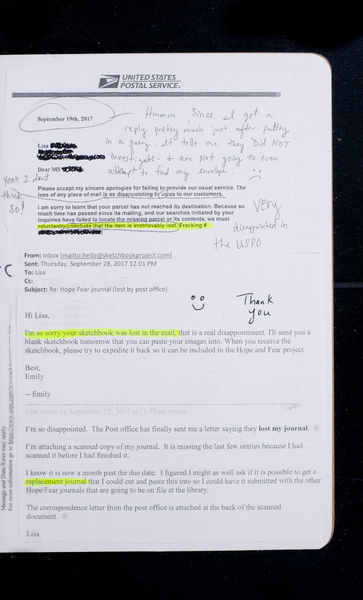 UNITED STATES
POSTAL SERVICE.
September 19th, 2017
Hmmm, Since I got a
reply pretty much just after putting
in a query. It tells me they Did NOT
investigate - & are Not going to even
attempt to find my envelope.
Lisa
Dear MS
Yeah I
think
So!
Please accept my sincere apologies for failing to provide our usual service. The
loss of any piece of mail is as disappointing to us as to our customers.
I am sorry to learn that your parcel has not reached its destination. Because so
much time has passed since its mailing, and our searches initiated by your
inquiries have failed to locate the missing parcel or its contents, we must
reluctantly conclude that the item is irretrievably lost. Tracking #
Very
disappointed in
the USPO
From: Inbox [mailto:hello@sketchbookproject.com]
Sent: Thursday, September 28, 2017 12:01 PM
To: Lisa
Cc:
Subject: Re: Hope Fear journal (lost by post office)
Thank
you
Hi Lisa,
I'm so sorry your sketchbook was lost in the mail, that is a real disappointment. I'll send you a
blank sketchbook tomorrow that you can paste your images into. When you receive the
sketchbook, please try to expedite it back so it can be included in the Hope and Fear project.
Best,
Emily
-- Emily
I'm so disappointed. The Post office has finally sent me a letter saying they lost my journal
I'm attaching a scanned copy of my journal. It is missing the last few entries because I had
scanned it before I had finished it.
I know it is now a month past the due date. I figured I might as well ask if it is possible to get a
replacement journal that I could cut and paste this into so I could have it submitted with the other
Hope/Fear journals that are going to be on file at the library.
The correspondence letter from the post office is attached at the back of the scanned
document.
Lisa
Message and Data Rates may apply.